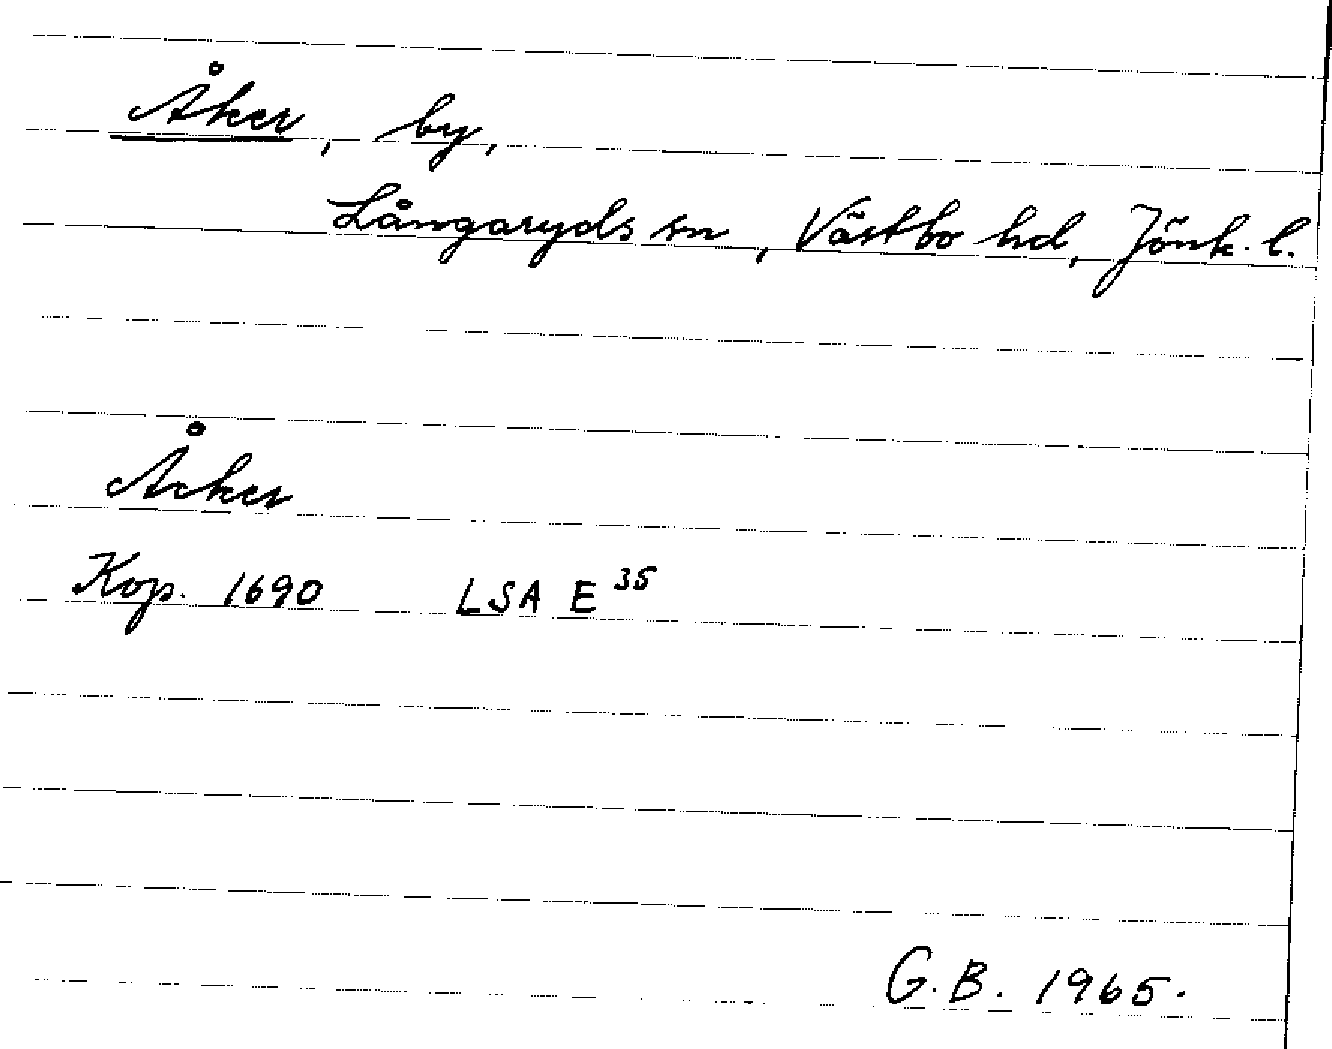 Åker, by,
Långaryds sn, Västbo hd, Jönk. l.
Åcker
Kop. 1690 LSA E 35
G.B. 1965.